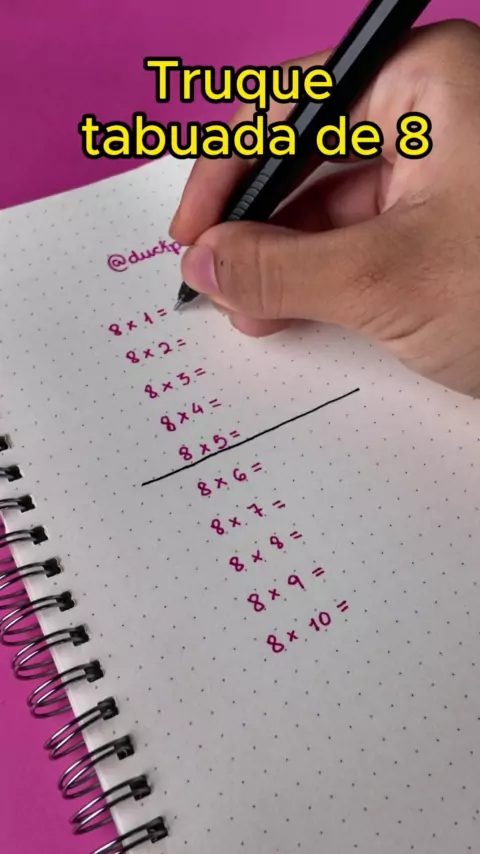 Truque
tabuada de 8
8 x 1 =
8 x 2 =
8 x 3 =
8 x 4 =
8 x 5 =
8 x 6 =
8 x 7 =
8 x 8 =
8 x 9 =
8 x 10 =